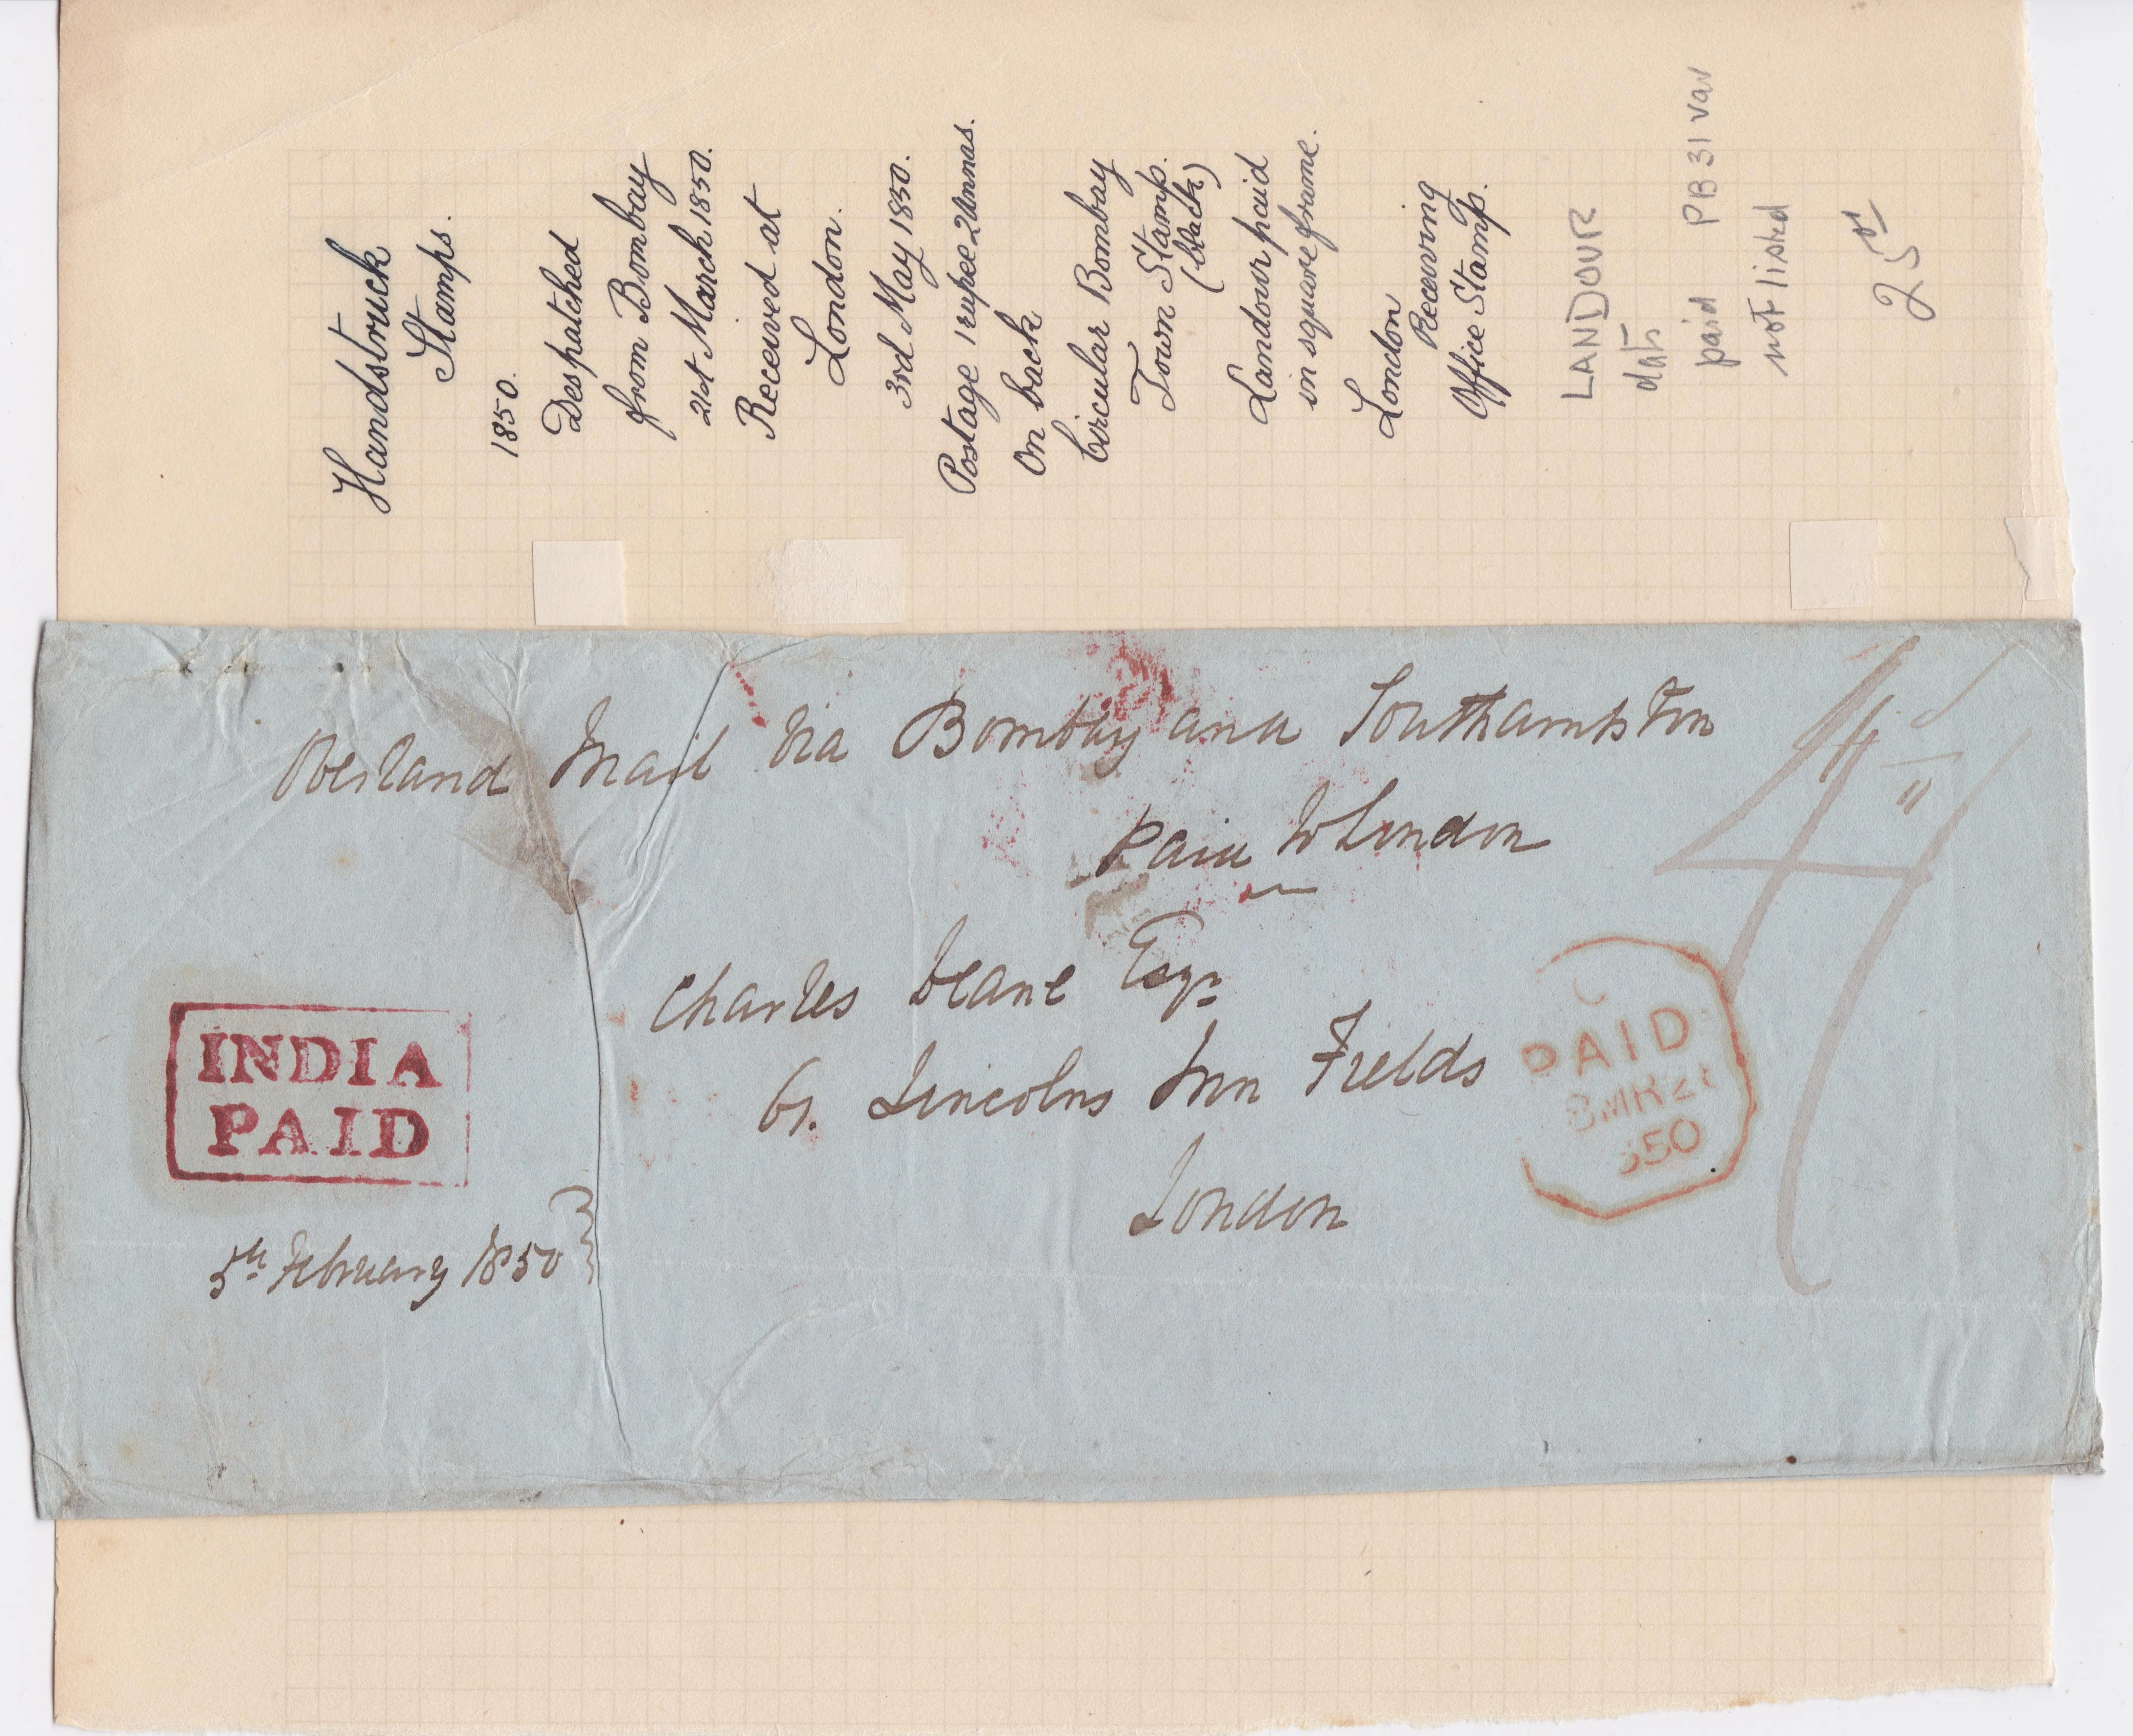 Handstruck
Stamps.
1850.
Despatched
from Bombay
21st March 1850.
Received at
London.
3rd May 1850.
Postage 1 rupee 2 Annas.
On back
Circular Bombay
Town Stamp.
(black)
Landour paid
in square frame.
London
Receiving
Office Stamp.
LANDOUR
paid PB31 var
not listed
25
Overland Mail Via Bombay and Southampton
Paid to London
Charles Deane Esqr
61. Lincolns Inn Fields
London
INDIA
PAID
5th February 1850
PAID
850